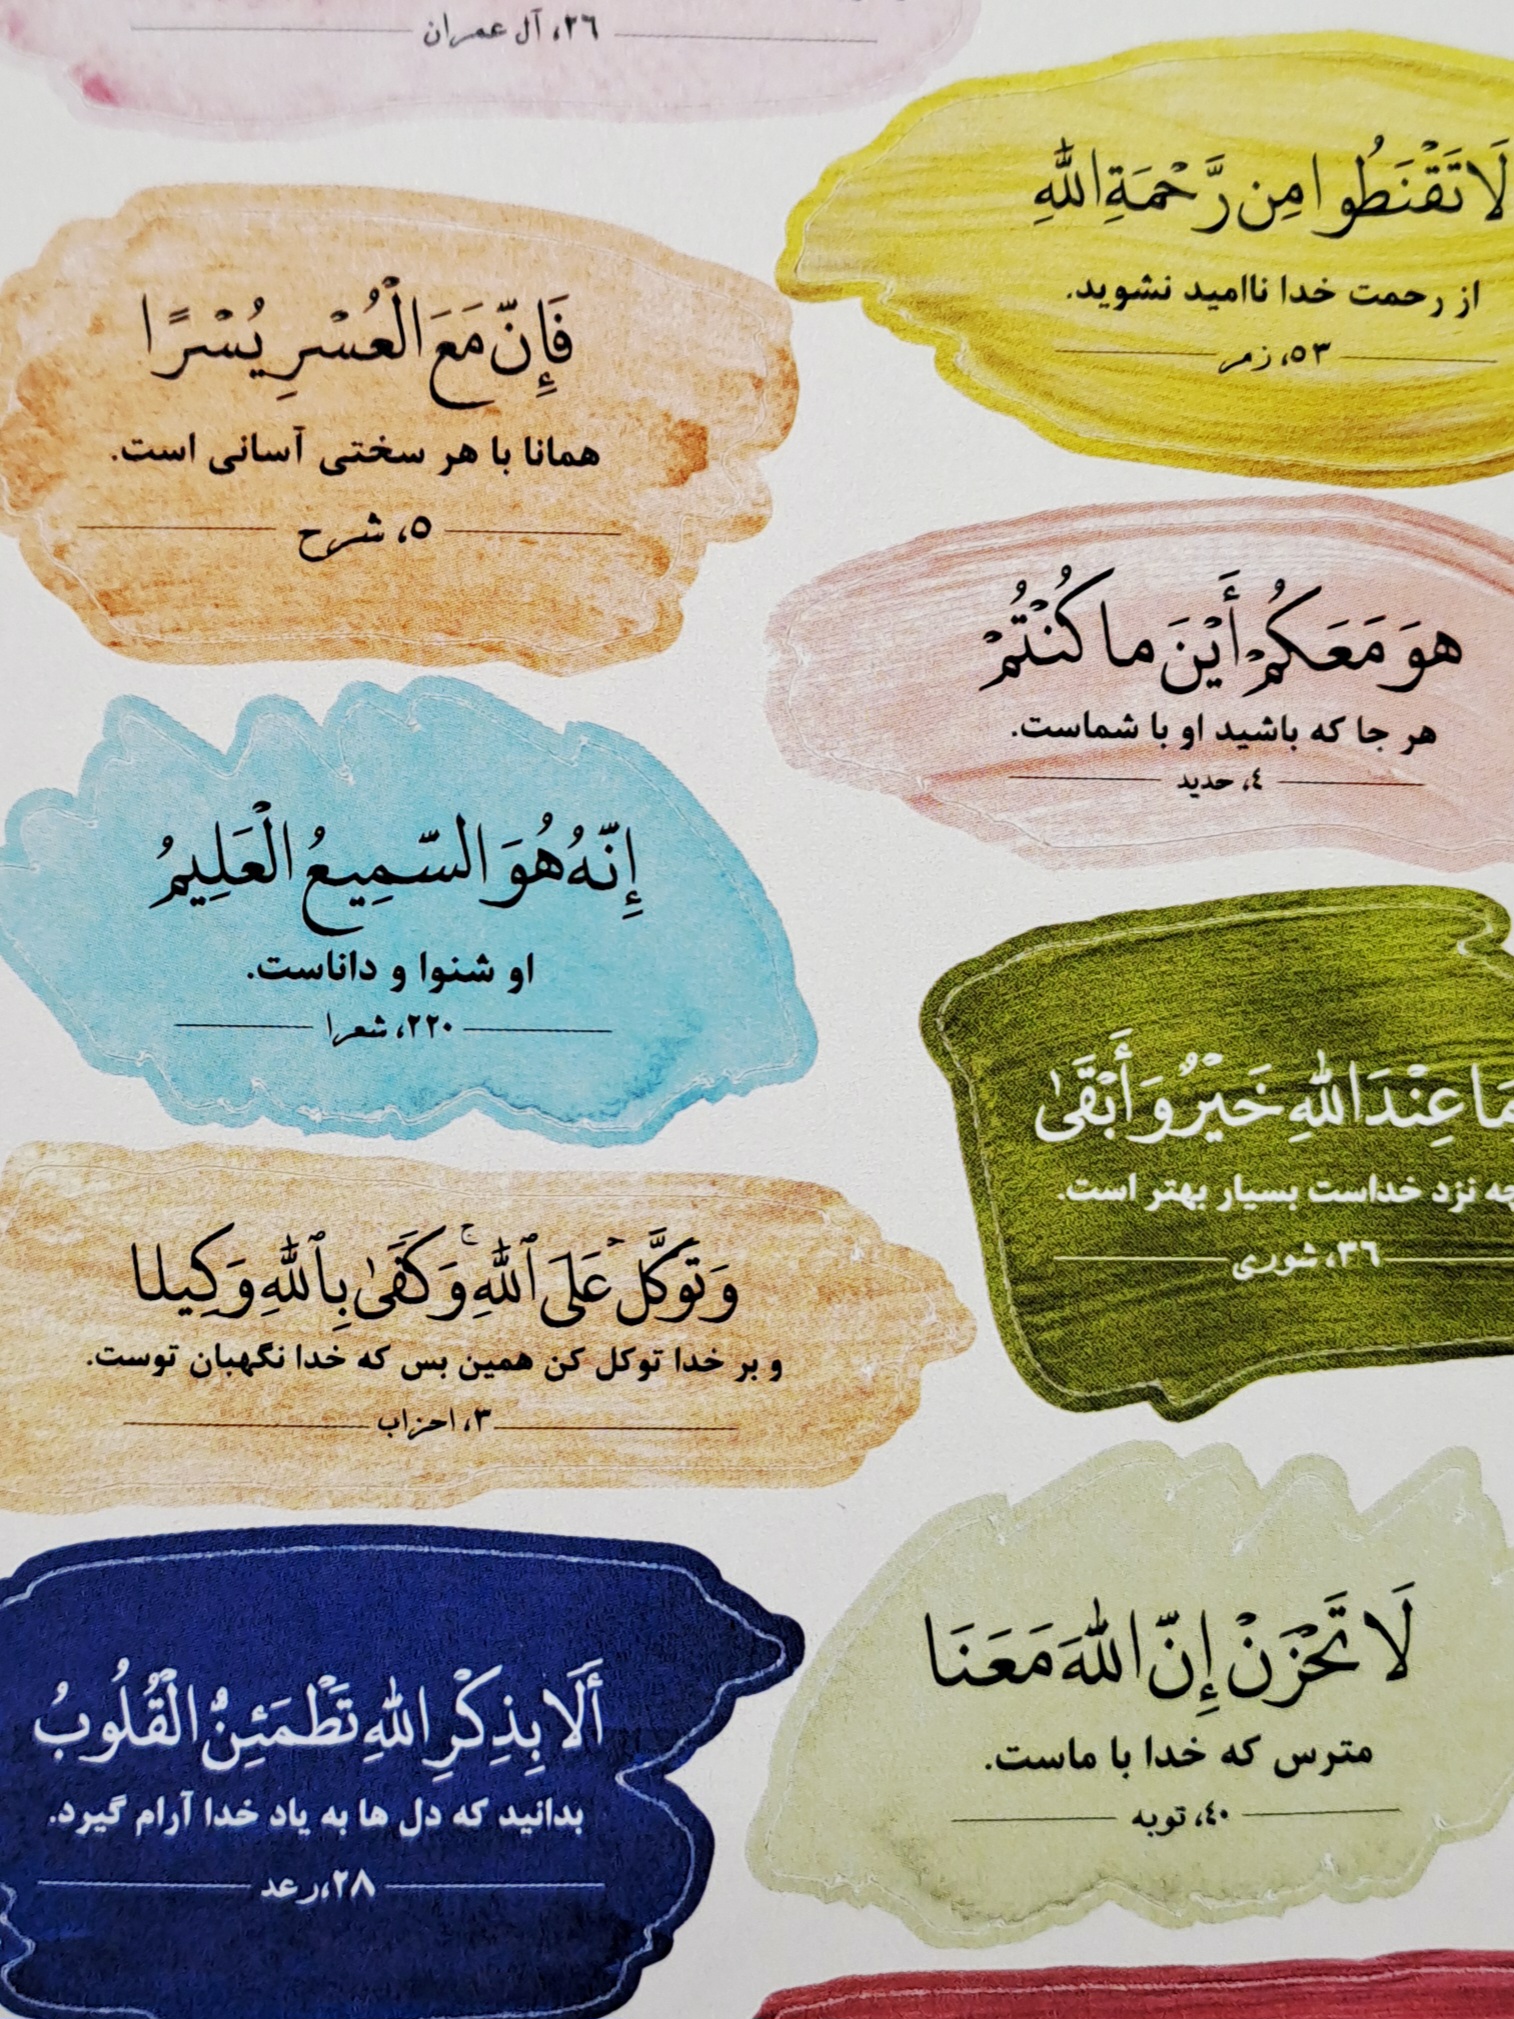 ٢٦، آل عمران
لَا تَقْنَطُوا مِن رَّحْمَةِ اللّٰهِ
از رحمت خدا ناامید نشوید.
٥٣، زمر
فَإِنَّ مَعَ الْعُسْرِ يُسْرًا
همانا با هر سختی آسانی است.
٥، شرح
هوَ مَعَكُمْ أَيْنَ ما كُنْتُمْ
هر جا که باشید او با شماست.
٤، حدید
إِنَّهُ هُوَ السَّمِيعُ الْعَلِيمُ
او شنوا و داناست.
٢٢٠، شعرا
مَا عِنْدَ اللّٰهِ خَيْرٌ وَ أَبْقَىٰ
چه نزد خداست بسیار بهتر است.
٣٦، شوری
وَ تَوَكَّلْ عَلَى ٱللّٰهِ ۚ وَ كَفَىٰ بِٱللّٰهِ وَكِيلا
و بر خدا توکل کن همین بس که خدا نگهبان توست.
٣، احزاب
لَا تَحْزَنْ إِنَّ اللّٰهَ مَعَنَا
مترس که خدا با ماست.
٤٠، توبه
أَلَا بِذِكْرِ اللّٰهِ تَطْمَئِنُّ الْقُلُوبُ
بدانید که دل ها به یاد خدا آرام گیرد.
٢٨، رعد